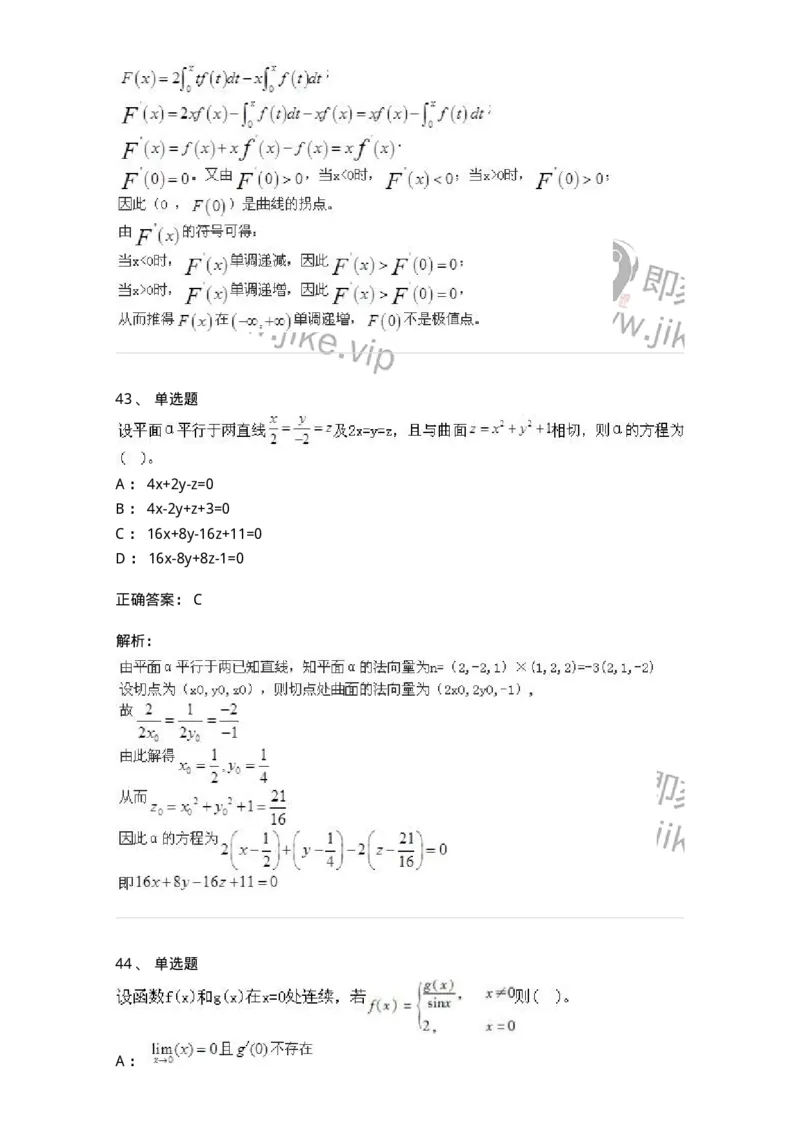 F(x)=2∫₀ˣ tf(t)dt-x∫₀ˣ f(t)dt;
F'(x)=2xf(x)-∫₀ˣ f(t)dt-xf(x)=xf(x)-∫₀ˣ f(t)dt;
F''(x)=f(x)+xf'(x)-f(x)=xf'(x).
F''(0)=0。又由F'''(0)>0,当x<0时,F''(x)<0;当x>0时,F''(x)>0;
因此(0,F(0))是曲线的拐点。
由F''(x)的符号可得:
当x<0时,F'(x)单调递减,因此F'(x)>F'(0)=0;
当x>0时,F'(x)单调递增,因此F'(x)>F'(0)=0,
从而推得F(x)在(-∞,+∞)单调递增,F(0)不是极值点。
www.jike.vip
43、 单选题
设平面α平行于两直线x/2=y/-2=z及2x=y=z,且与曲面z=x²+y²+1相切,则α的方程为
( )。
A: 4x+2y-z=0
B: 4x-2y+z+3=0
C: 16x+8y-16z+11=0
D: 16x-8y+8z-1=0
正确答案: C
解析:
由平面α平行于两已知直线,知平面α的法向量为n=(2,-2,1)×(1,2,2)=-3(2,1,-2)
设切点为(x0,y0,z0),则切点处曲面的法向量为(2x0,2y0,-1),
故 2/2x₀=1/2y₀=-2/-1
由此解得x₀=1/2,y₀=1/4
从而z₀=x₀²+y₀²+1=21/16
因此α的方程为2(x-1/2)+(y-1/4)-2(z-21/16)=0
即16x+8y-16z+11=0
44、 单选题
设函数f(x)和g(x)在x=0处连续,若f(x)={g(x)/sinx, x≠0 则( )。
2, x=0
A: lim(x)=0且g′(0)不存在
x→0